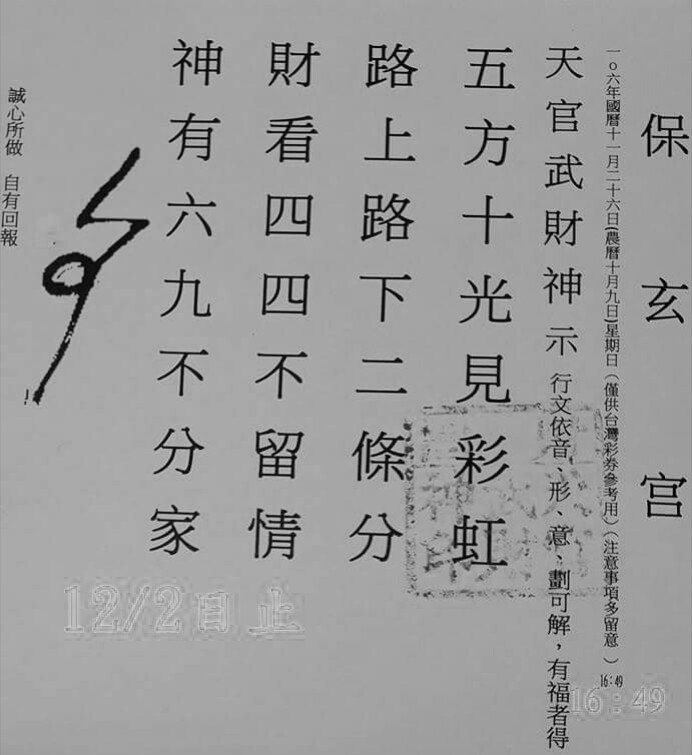 保玄宫
一０六年國曆十一月二十六日(農曆十月九日)星期日（僅供台灣彩券參考用）（注意事項多留意）
16:49
天官武財神示 行文依音、形、意、劃可解，有福者得
五方十光見彩虹
路上路下二條分
財看四四不留情
神有六九不分家
誠心所做 自有回報
12/2日止
16:49